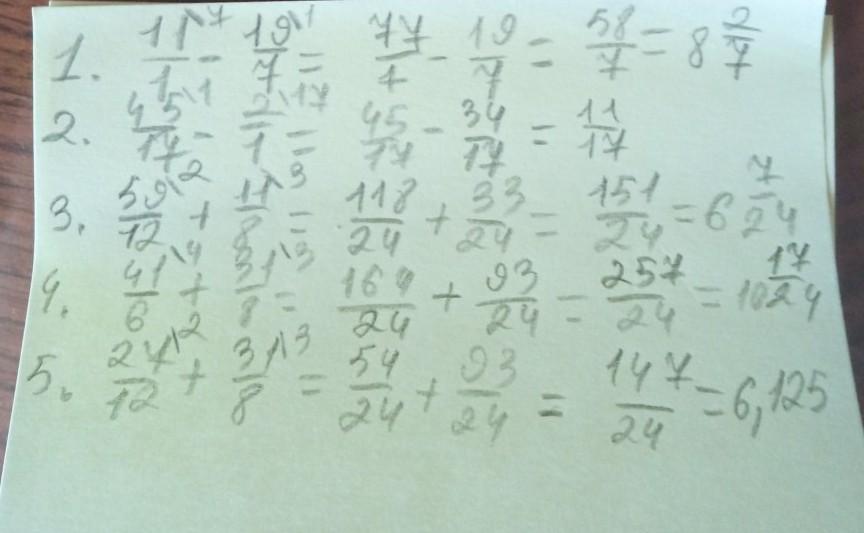 1. 11/1\7 - 19/7\1 = 77/1 - 19/7 = 58/7 = 8 2/7
2. 45/17\1 - 2/1\17 = 45/17 - 34/17 = 11/17
3. 59/12\2 + 11/8\3 = 118/24 + 33/24 = 151/24 = 6 7/24
4. 41/6\4 + 31/8\3 = 164/24 + 93/24 = 257/24 = 10 17/24
5. 27/12\2 + 31/8\3 = 54/24 + 93/24 = 147/24 = 6,125